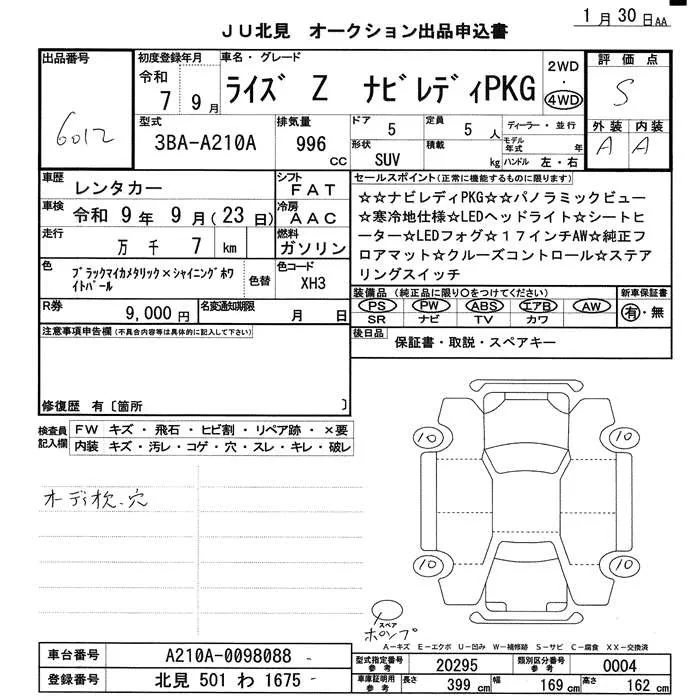 JU北見 オークション出品申込書
1月30日AA
出品番号
6012
初度登録年月
令和
7 9月
車名・グレード
ライズ Z ナビレディPKG
2WD
・
4WD
評価点
S
外装 内装
A A
型式
3BA-A210A
排気量
996
CC
ドア
5
定員
5 人
形状
SUV
積載
kg
ディーラー・並行
モデル年式 年
ハンドル 左・右
車歴
レンタカー
シフト
FAT
車検
令和 9年 9月(23日)
冷房
AAC
走行
万 千 7 km
燃料
ガソリン
色
ブラックマイカメタリック×シャイニングホワイトパール
色替
色コード
XH3
R券
9,000円
名変通知期限
月 日
セールスポイント(正常に機能するものに限ります)
☆☆ナビレディPKG☆☆パノラミックビュー
☆寒冷地仕様☆LEDヘッドライト☆シートヒ
ーター☆LEDフォグ☆17インチAW☆純正フ
ロアマット☆クルーズコントロール☆ステア
リングスイッチ
装備品(純正品に限り〇をつけてください)
PS PW ABS エアB AW
SR ナビ TV カワ
新車保証書
有・無
後日品
保証書・取説・スペアキー
注意事項申告欄(不具合内容等は具体的に記入して下さい)
修復歴 有〔箇所 〕
検査員
記入欄
FW キズ・飛石・ヒビ割・リペア跡・×要
内装 キズ・汚レ・コゲ・穴・スレ・キレ・破レ
オーディ枕.穴
10 10
10 10
スペア
ポンプ
A-キズ E-エクボ U-凹み W-補修跡 S-サビ C-腐食 XX-交換済
車台番号
A210A-0098088
登録番号
北見 501 わ 1675
型式指定番号
参考
20295
類別区分番号
参考
0004
車庫証明用
参考
長さ
399 cm
幅
169 cm
高さ
162 cm